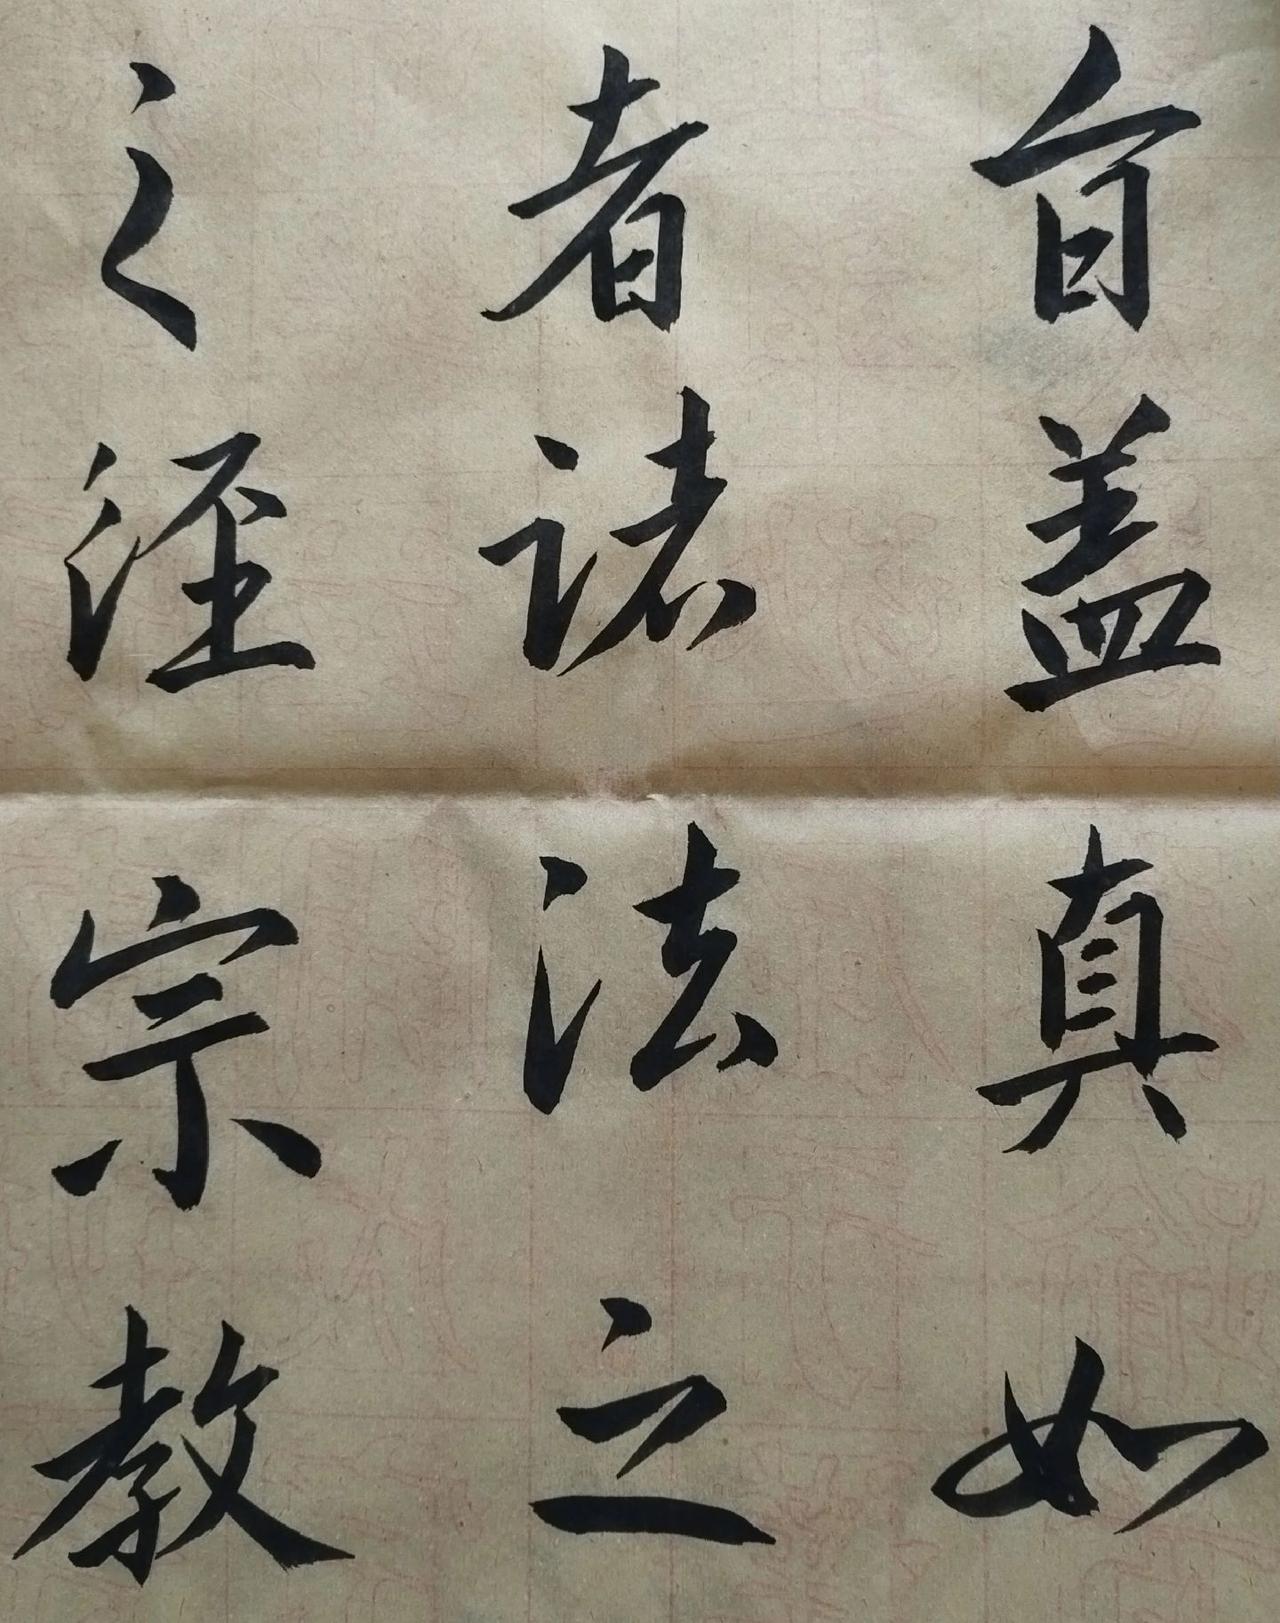 旨盖真如
者诸法之
之泾宗教